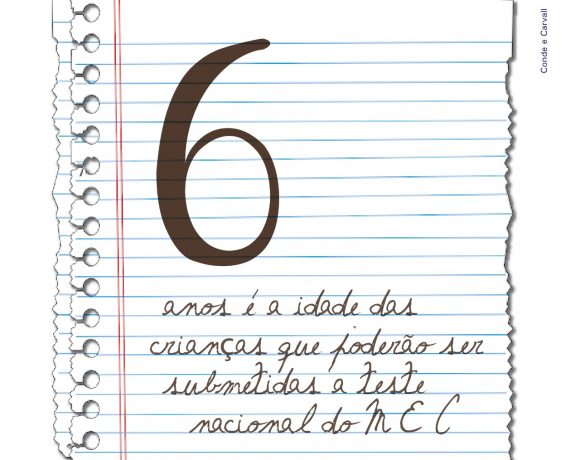 Conde e Carvall
6
anos é a idade das
crianças que poderão ser
submetidas a teste
nacional do MEC